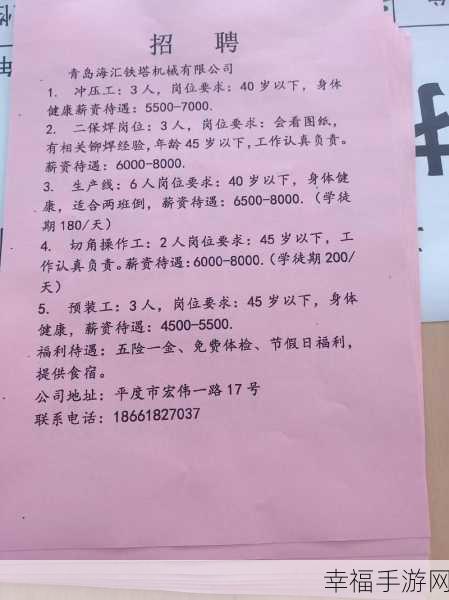 招 聘
青岛海汇铁塔机械有限公司
1. 冲压工：3人，岗位要求：40岁以下，身体
健康薪资待遇：5500-7000.
2. 二保焊岗位：3人，岗位要求：会看图纸，
有相关铆焊经验,年龄45岁以下,工作认真负责。
薪资待遇：6000-8000.
3. 生产线：6人岗位要求：40岁以下，身体健
康，适合两班倒，薪资待遇：6500-8000.（学徒
期180/天）
4. 切角操作工：2人岗位要求：45岁以下，工
作认真负责。薪资待遇:6000-8000.（学徒期200/
天）
5. 预装工：3人，岗位要求：45岁以下，身体
健康，薪资待遇：4500-5500.
福利待遇：五险一金、免费体检、节假日福利，
提供食宿。
公司地址：平度市宏伟一路17号
联系电话：18661827037
幸福手游网